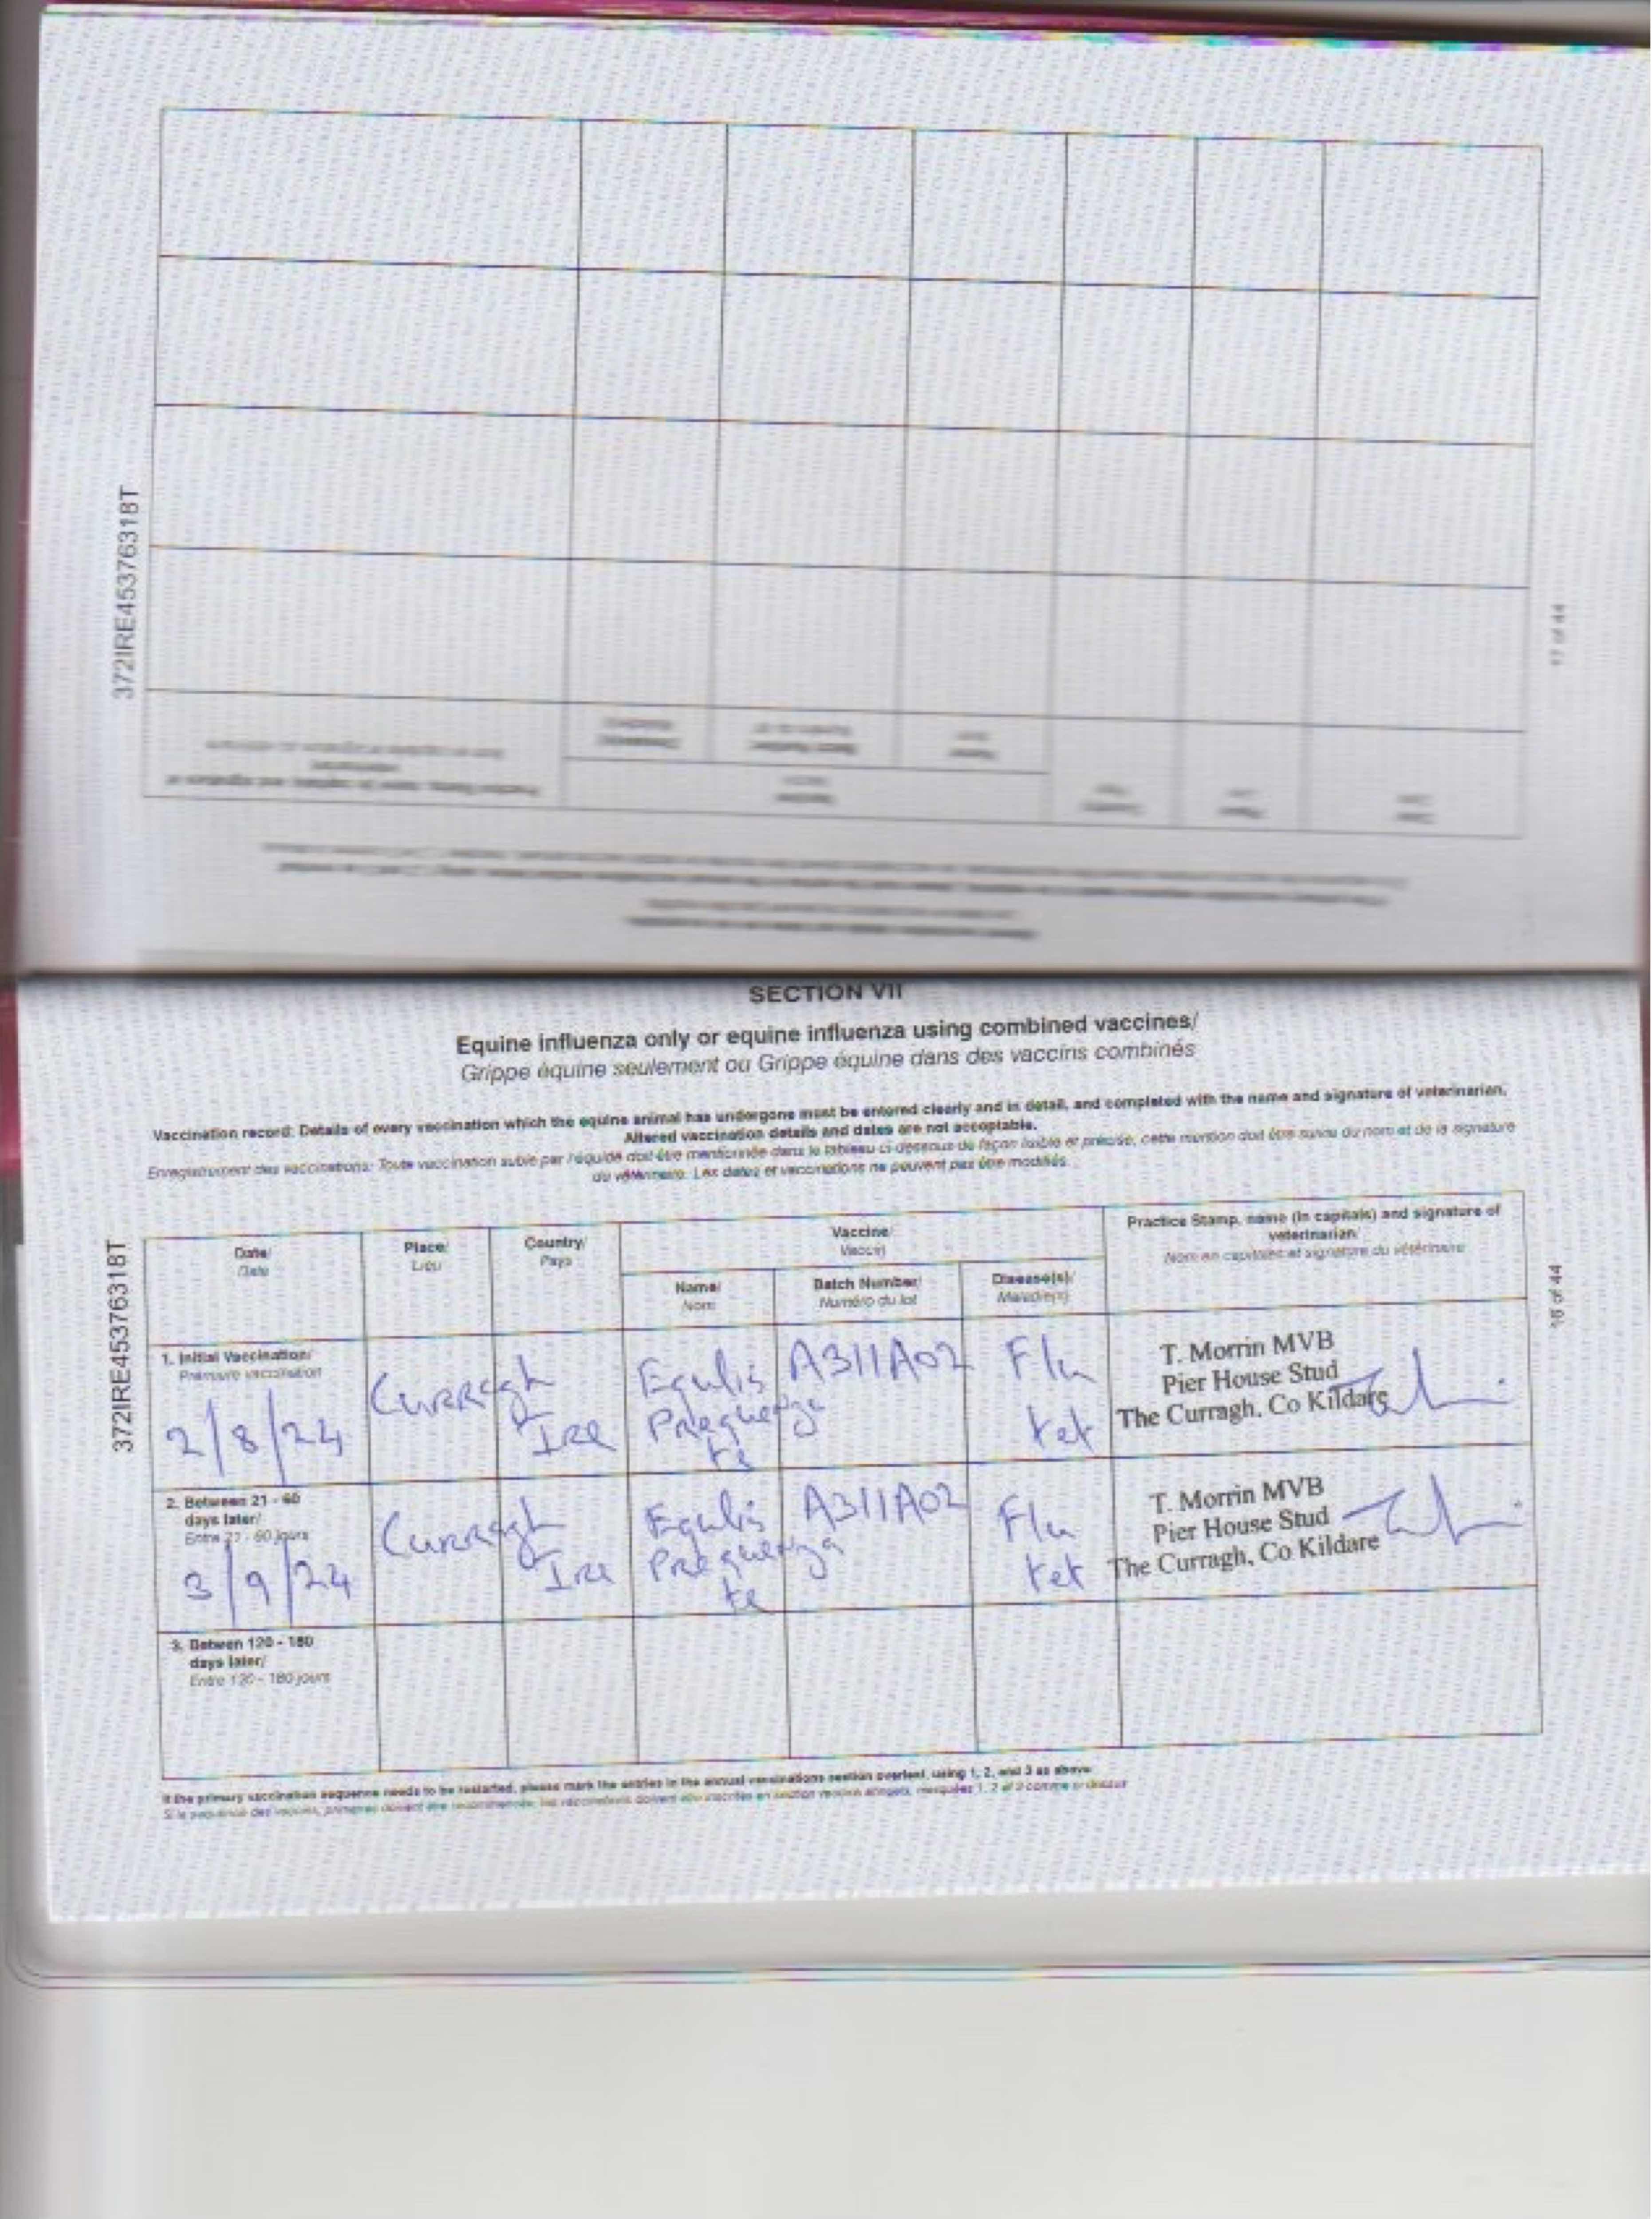 372IRE45376318T
17 of 44
SECTION VII
Equine influenza only or equine influenza using combined vaccines/
Grippe équine seulement ou Grippe équine dans des vaccins combinés
Vaccination record: Details of every vaccination which the equine animal has undergone must be entered clearly and in detail, and completed with the name and signature of veterinarian.
Altered vaccination details and dates are not acceptable.
Enregistrement des vaccinations: Toute vaccination subie par l'équidé doit être mentionnée dans le tableau ci-dessous de façon lisible et précise, cette mention doit être suivie du nom et de la signature
du vétérinaire. Les dates et vaccinations ne peuvent pas être modifiés.
372IRE45376318T
16 of 44
Date/
Date
Place/
Lieu
Country/
Pays
Vaccine/
Vaccin
Name/
Nom
Batch Number/
Numéro du lot
Disease(s)/
Maladie(s)
Practice Stamp, name (in capitals) and signature of
veterinarian/
Nom en capitales et signature du vétérinaire
1. Initial Vaccination/
Première vaccination
2/8/24
Curragh
Ire
Equilis
Prequenza
te
A311A02
Flu
tet
T. Morrin MVB
Pier House Stud
The Curragh, Co Kildare
2. Between 21 - 60
days later/
Entre 21 - 60 jours
3/9/24
Curragh
Ire
Equilis
Prequenza
te
A311A02
Flu
tet
T. Morrin MVB
Pier House Stud
The Curragh, Co Kildare
3. Betwen 120 - 180
days later/
Entre 120 - 180 jours
If the primary vaccination sequence needs to be restarted, please mark the entries in the annual vaccinations section overleaf, using 1, 2, and 3 as above